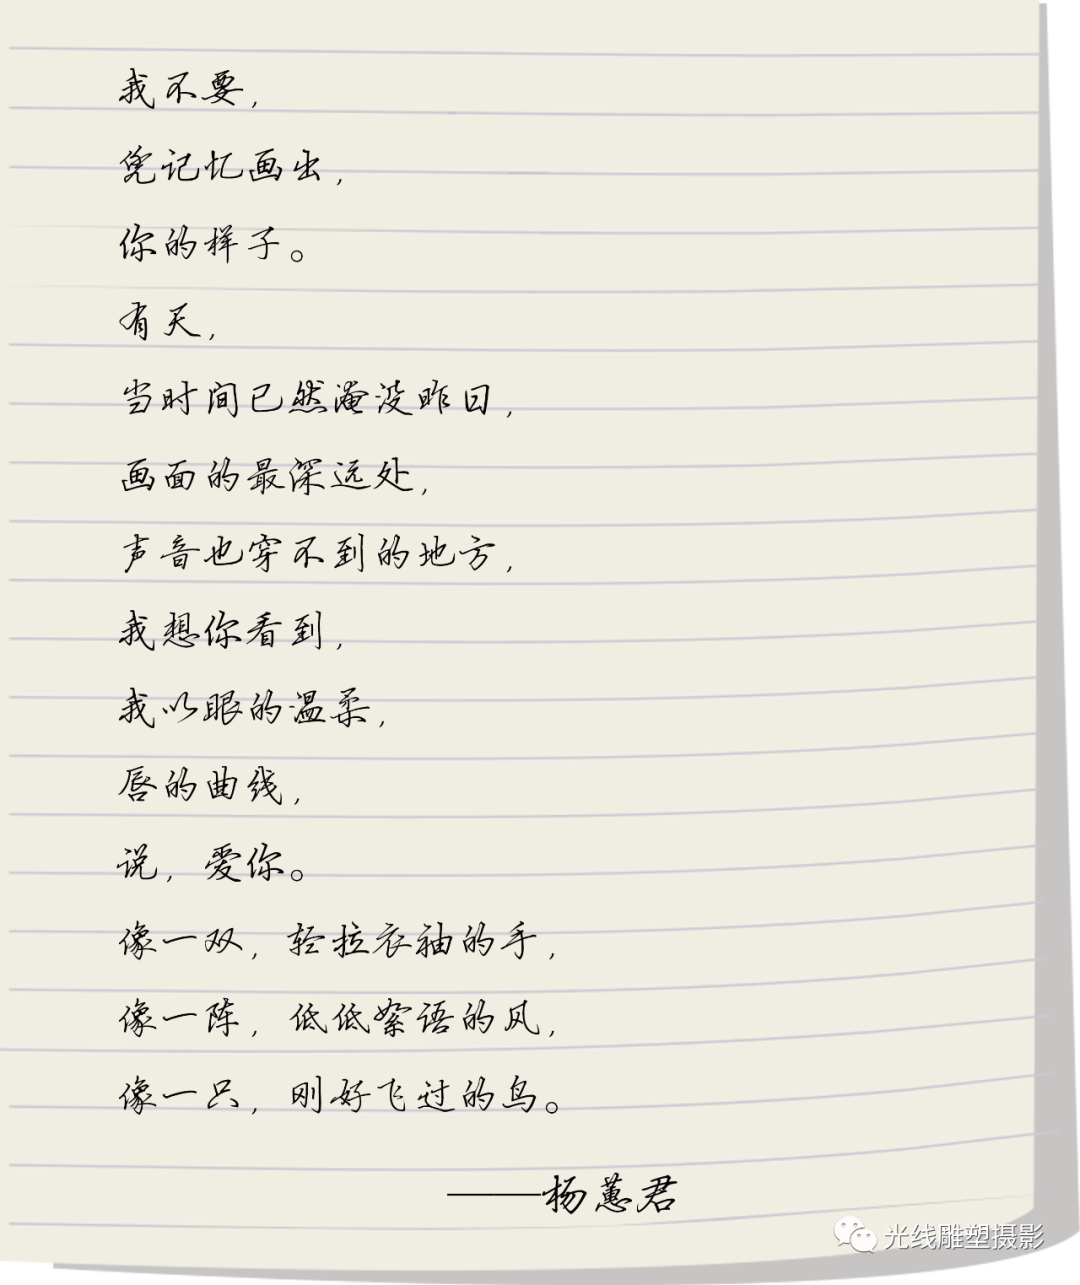 我不要，
凭记忆画出，
你的样子。
有天，
当时间已然淹没昨日，
画面的最深远处，
声音也穿不到的地方，
我想你看到，
我以眼的温柔，
唇的曲线，
说，爱你。
像一双，轻拉衣袖的手，
像一阵，低低絮语的风，
像一只，刚好飞过的鸟。
——杨蕙君
光线雕塑摄影